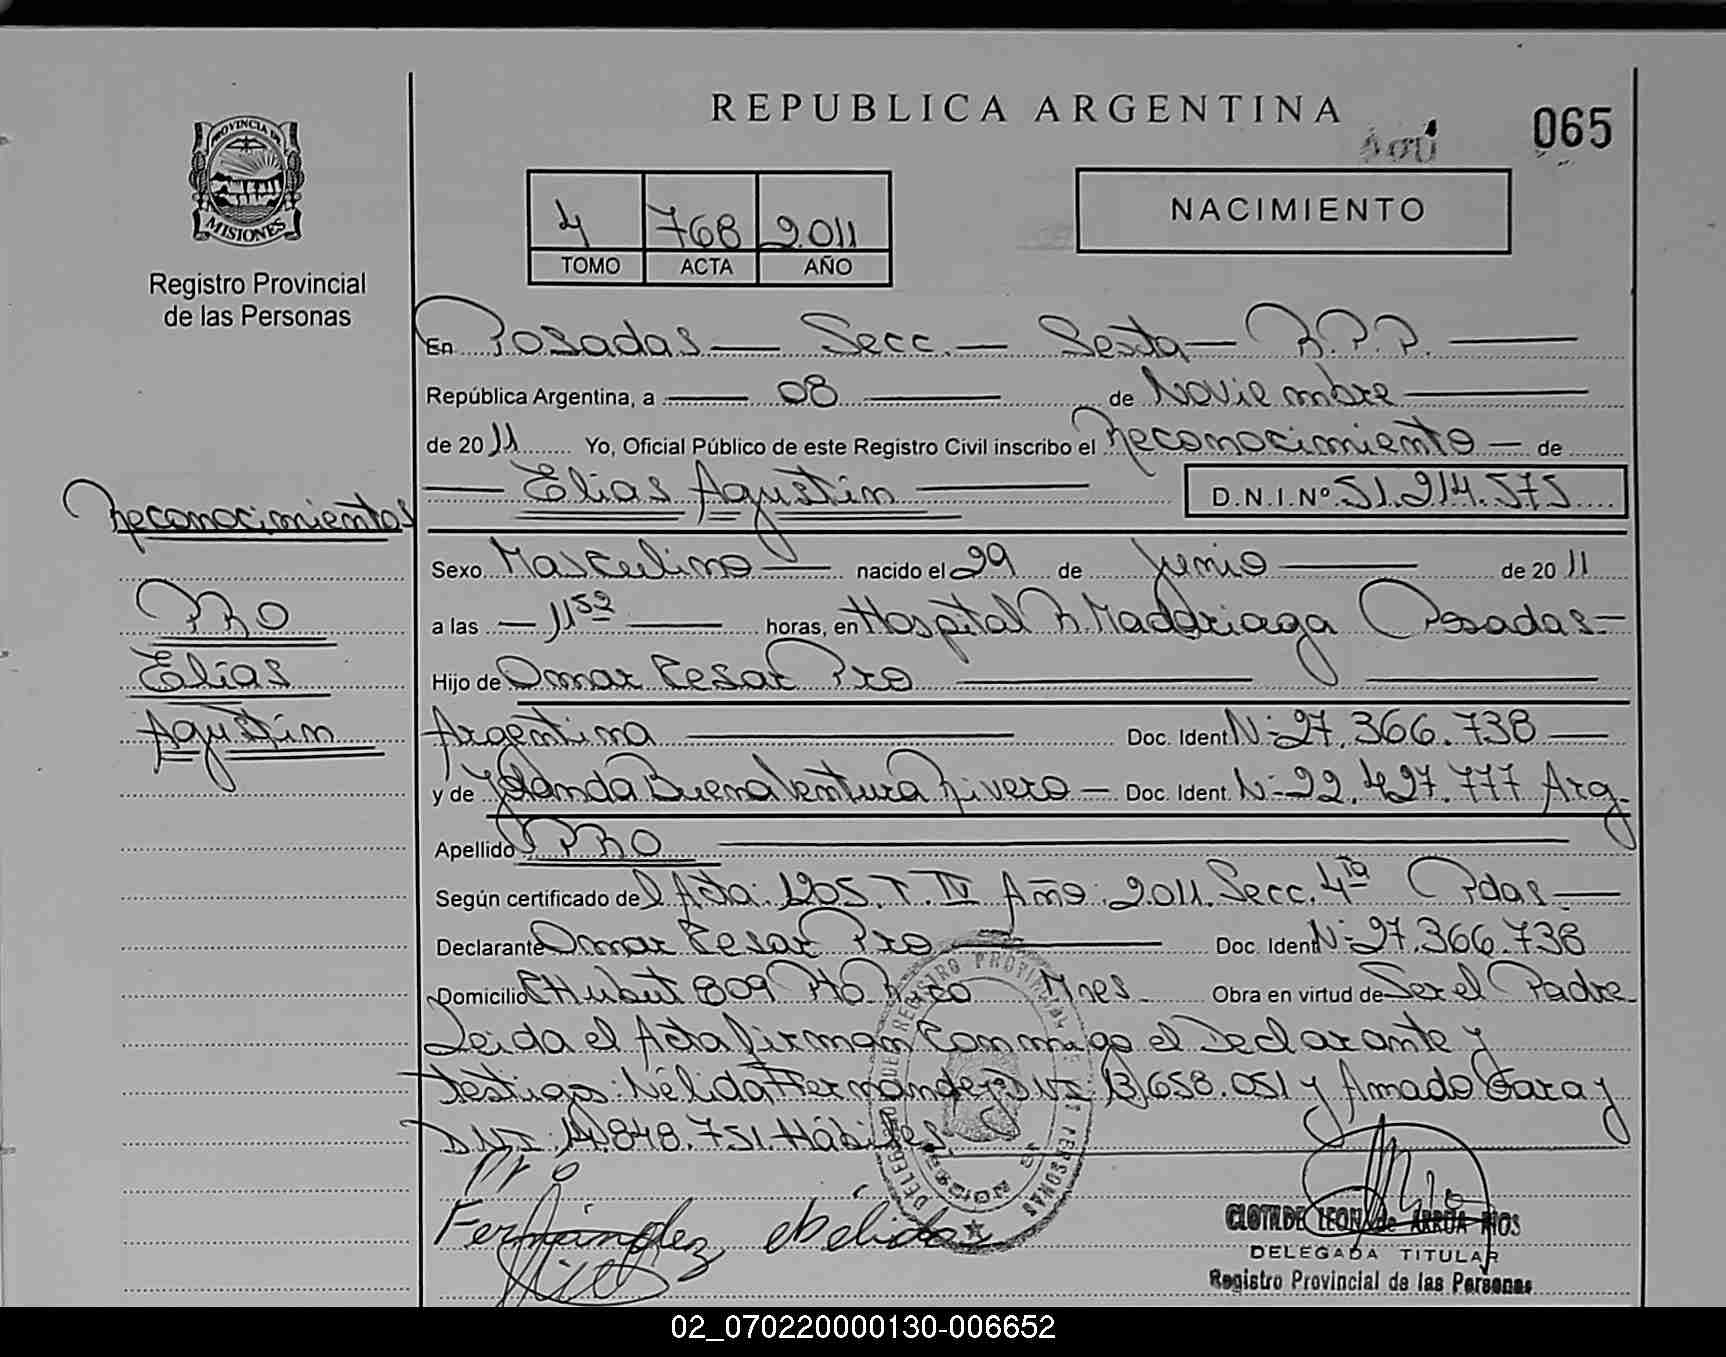 REPUBLICA ARGENTINA
065
PROVINCIA DE
MISIONES
Registro Provincial
de las Personas
4 768 2011
TOMO ACTA AÑO
NACIMIENTO
En Posadas — Secc. — Sexta — R.P.P. —
República Argentina, a — 08 — de Noviembre —
de 2011 Yo, Oficial Público de este Registro Civil inscribo el Reconocimiento — de
— Elias Agustin — D.N.I.Nº 51.214.575
Reconocimientos
PRO
Elias
Agustin
Sexo Masculino — nacido el 29 de Junio — de 2011
a las — 11⁵² — horas, en Hospital R. Maddriaga Posadas —
Hijo de Omar Cesar Pro —
Argentina — Doc. Ident N: 27.366.738 —
y de Yolanda Buenaventura Rivero — Doc. Ident. N: 22.427.777 Arg.
Apellido PRO —
Según certificado del Acta: 1205. T. IV Año: 2011. Secc. 4ta Pdas. —
Declarante Omar Cesar Pro — Doc. Ident N: 27.366.738
Domicilio CHubut 809 Pto Rico Mnes. Obra en virtud de Ser el Padre
Leida el Acta firman Conmigo el Declarante y
testigos: Nélida Fernandez DNI 13.658.051 y Amado Garay
DNI: 14.848.751 Hábiles
Pro
Fernández Nélida
CLOTILDE LEON de ARRUA RIOS
DELEGADA TITULAR
Registro Provincial de las Personas
02_070220000130-006652